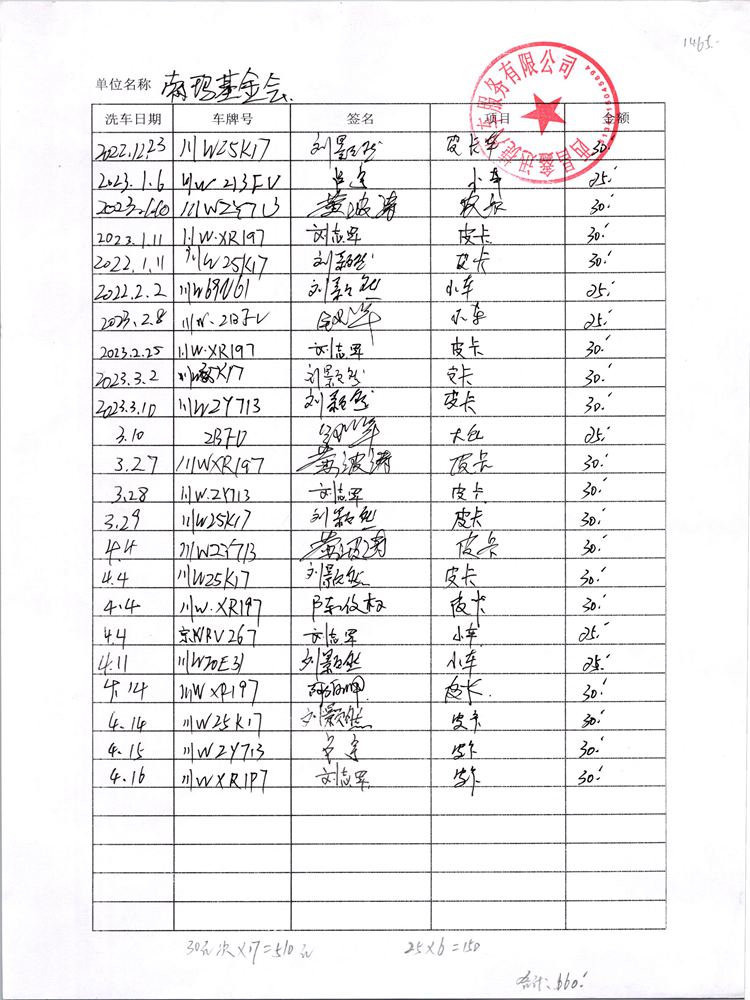 1465.-
单位名称 南玛基金会.
西昌鑫迅捷汽车服务有限公司
洗车日期 车牌号 签名 项目 金额
2022.12.23 川W25K17 刘景然 皮卡车 30.-
2023.1.6 川W 2B3FV 小车 25.-
2023.1.10 川W2Y713 黄波涛 皮卡 30.-
2023.1.11 川W.XR197 刘志军 皮卡 30.-
2022.1.11 川W25K17 刘颢然 皮卡 30.-
2022.2.2 川W69N61 刘颢然 小车 25.-
2023.2.8 川W.2BFV 小车 25.-
2023.2.25 川W.XR197 刘志军 皮卡 30.-
2023.3.2 刘颢然 皮卡 30.-
2023.3.10 川W2Y713 刘颢然 皮卡 30.-
3.10 25.-
3.27 川WXR197 黄波涛 皮卡 30.-
3.28 川W.2Y713 刘志军 皮卡 30.-
3.29 川W25K17 刘颢然 皮卡 30.-
4.4 川W2Y713 黄波涛 皮卡 30.-
4.4 川W25K17 刘颢然 皮卡 30.-
4.4 川W.XR197 陈俊松 皮卡 30.-
4.4 京NRV267 刘志军 小车 25.-
4.11 川W70E31 刘颢然 小车 25.-
4.14 川W XR197 皮卡 30.-
4.14 川W25K17 刘颢然 皮卡 30.-
4.15 川W2Y713 皮卡 30.-
4.16 川WXR197 刘志军 皮卡 30.-
30元/次×17=510元 25×6=150
合计: 660.-